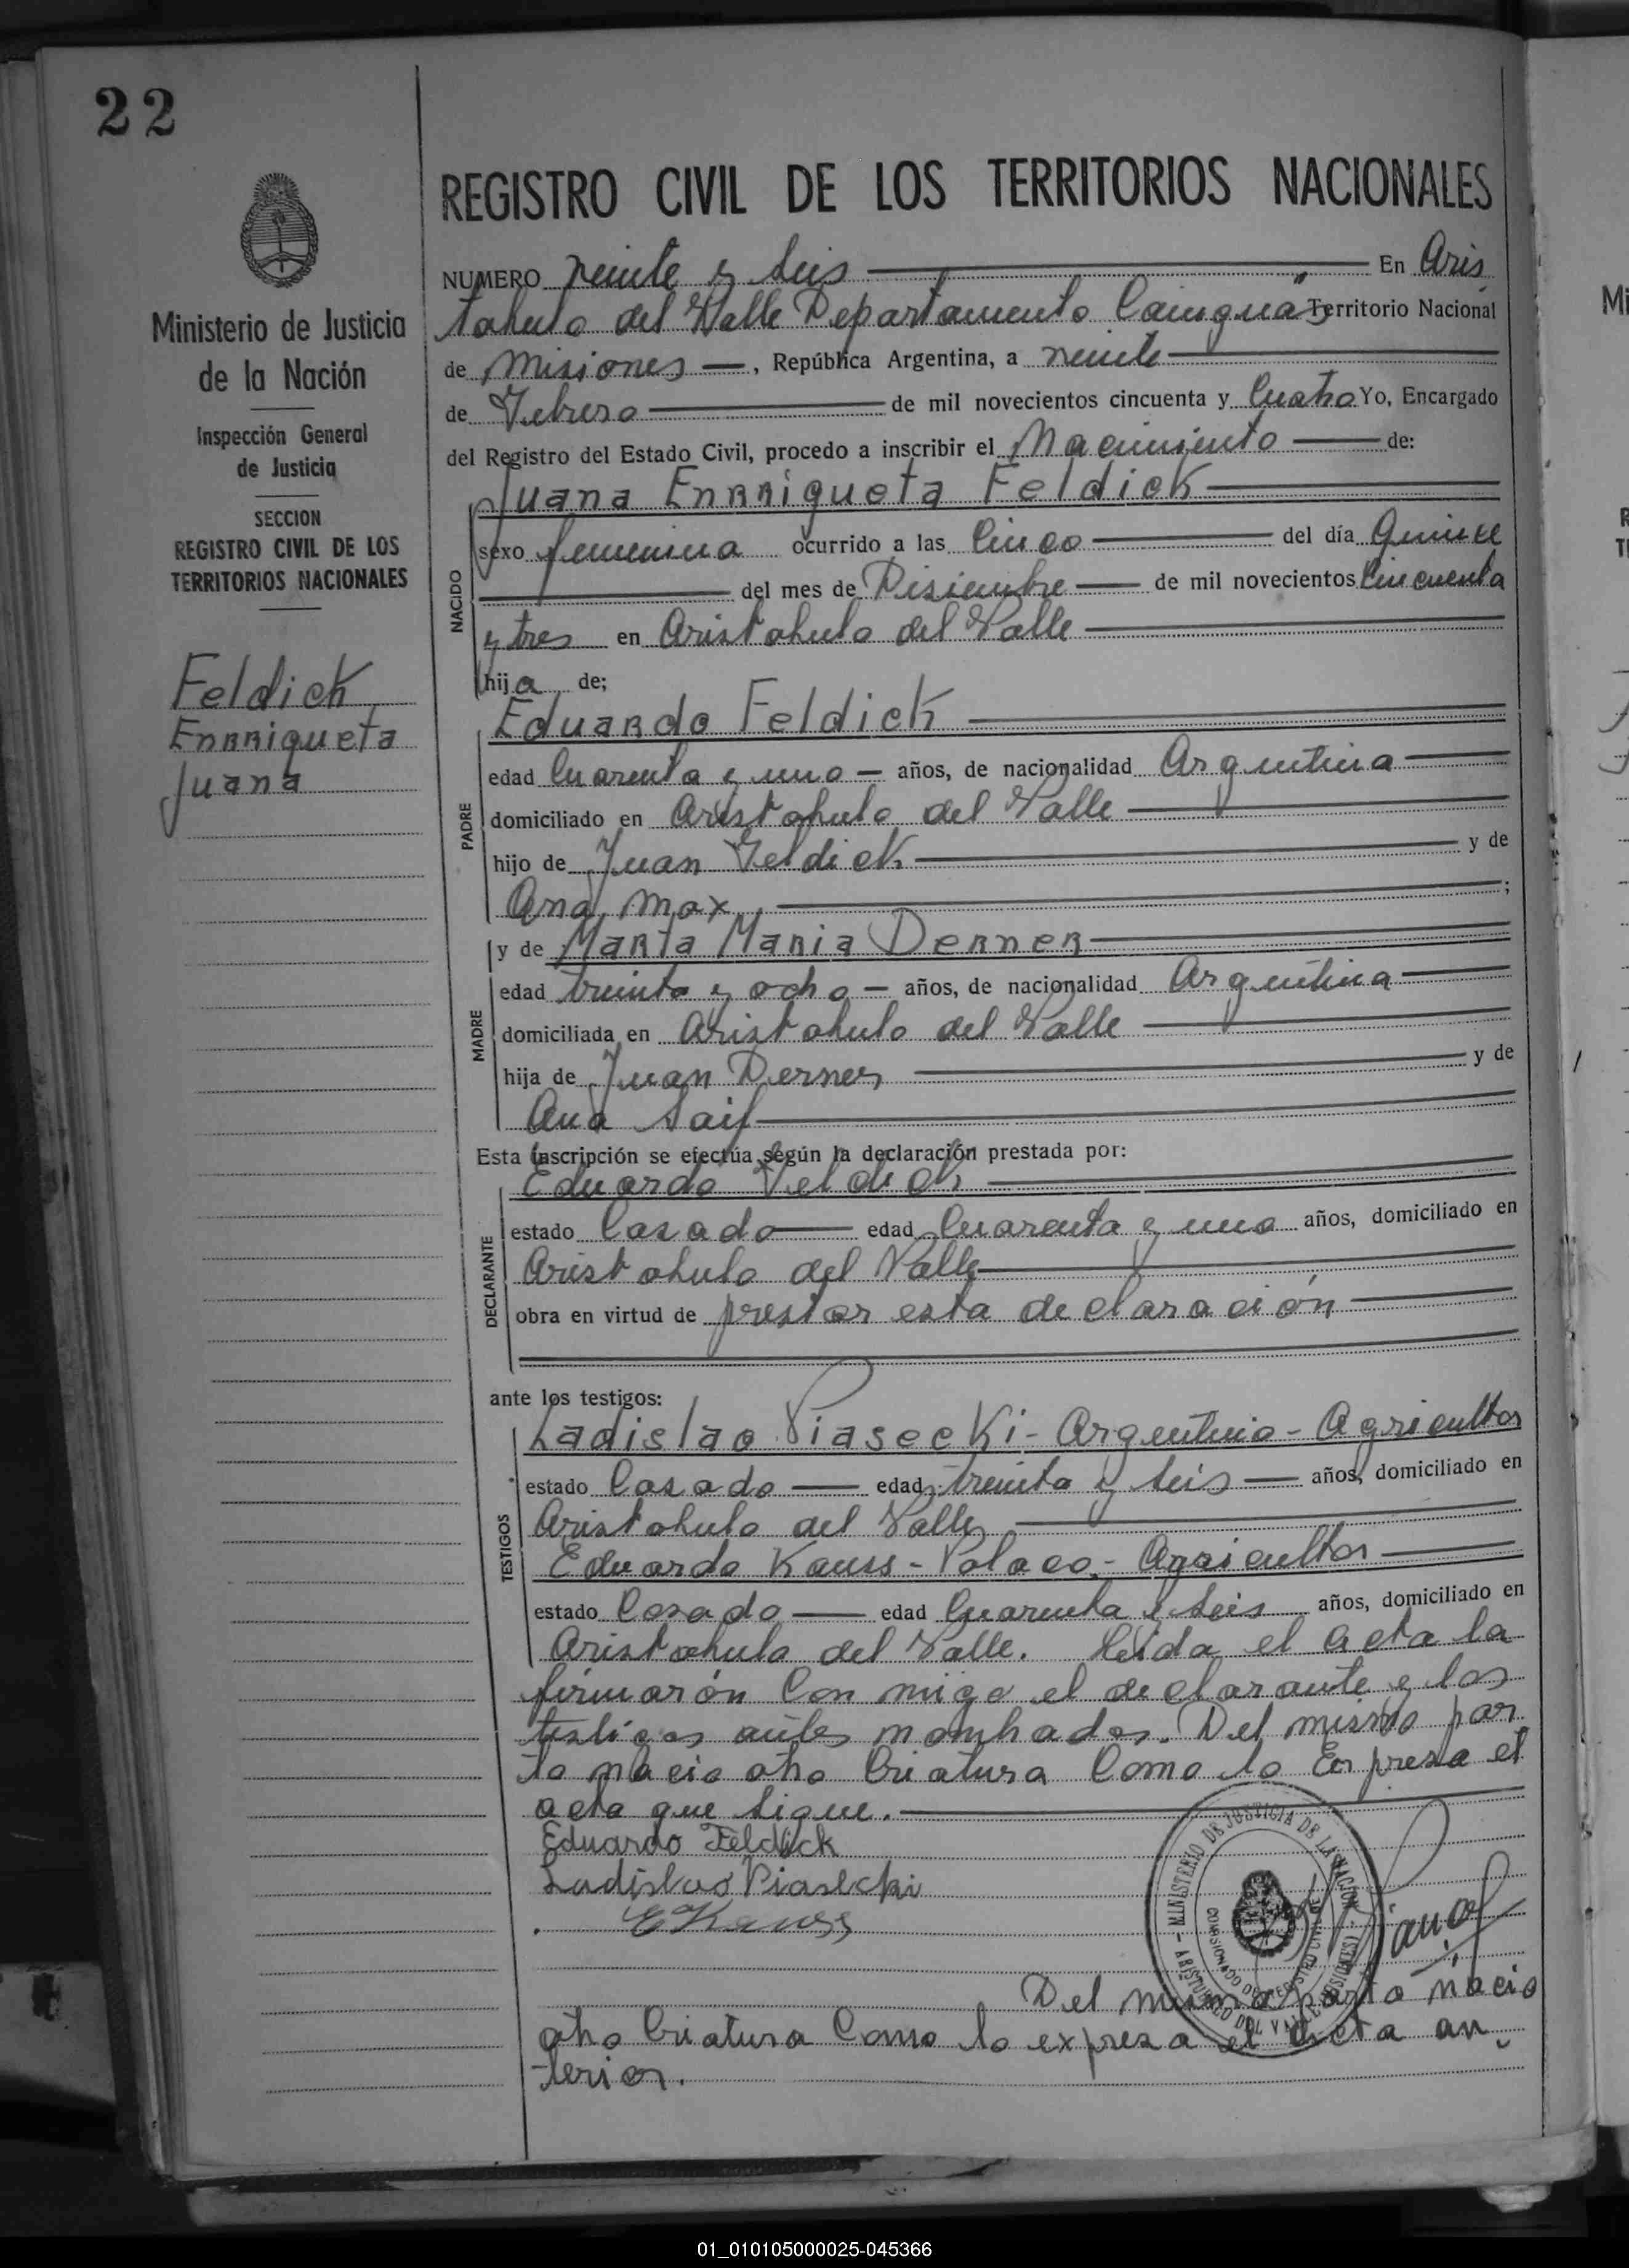 22
Ministerio de Justicia
de la Nación
Inspección General
de Justicia
SECCION
REGISTRO CIVIL DE LOS
TERRITORIOS NACIONALES
Feldick
Enrriqueta
Juana
REGISTRO CIVIL DE LOS TERRITORIOS NACIONALES
NUMERO veinte y seis En Aris
tobulo del Valle Departamento Cainguás Territorio Nacional
de Misiones, República Argentina, a veinte
de Febrero de mil novecientos cincuenta y Cuatro Yo, Encargado
del Registro del Estado Civil, procedo a inscribir el Nacimiento de:
Juana Enrriqueta Feldick
NACIDO
sexo femenina ocurrido a las Cinco del día Quince
del mes de Disiembre de mil novecientos Cincuenta
y tres en Aristobulo del Valle
hija de;
Eduardo Feldick
PADRE
edad Cuarenta y uno años, de nacionalidad Argentina
domiciliado en Aristobulo del Valle
hijo de Juan Feldick y de
Ana Max;
y de Marta Maria Derner
MADRE
edad treinta y ocho años, de nacionalidad Argentina
domiciliada en Aristobulo del Valle
hija de Juan Derner y de
Ana Saif
Esta inscripción se efectúa según la declaración prestada por:
Eduardo Feldick
DECLARANTE
estado Casado edad Cuarenta y uno años, domiciliado en
Aristobulo del Valle
obra en virtud de prestar esta declaración
ante los testigos:
TESTIGOS
Ladislao Piasecki - Argentino - Agricultor
estado Casado edad treinta y seis años, domiciliado en
Aristobulo del Valle
Eduardo Kauss - Polaco - Agricultor
estado Casado edad Cuarenta y seis años, domiciliado en
Aristobulo del Valle. Leida el acta la
firmarón Con migo el declarante y los
testigos antes nombrados. Del mismo par
to nacio otro Criatura Como lo Expresa el
acta que sigue.
Eduardo Feldick
Ladislao Piasecki
E Kauss
MINISTERIO DE JUSTICIA DE LA NACION
ARISTOBULO DEL VALLE (MISIONES)
Del mismo parto nacio
otro Criatura Como lo expresa el acta an
terior.
01_010105000025-045366